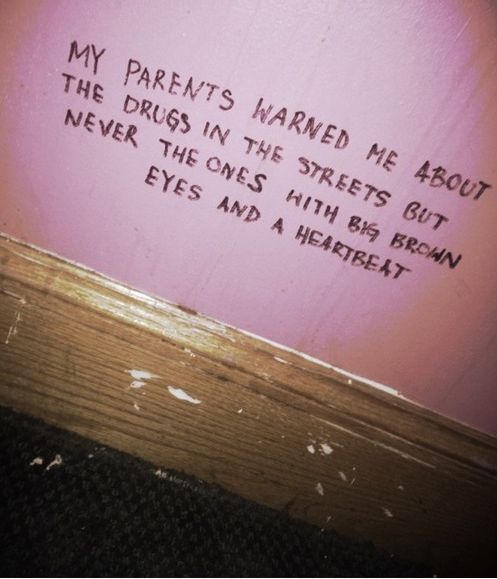 MY PARENTS WARNED ME ABOUT
THE DRUGS IN THE STREETS BUT
NEVER THE ONES WITH BIG BROWN
EYES AND A HEARTBEAT